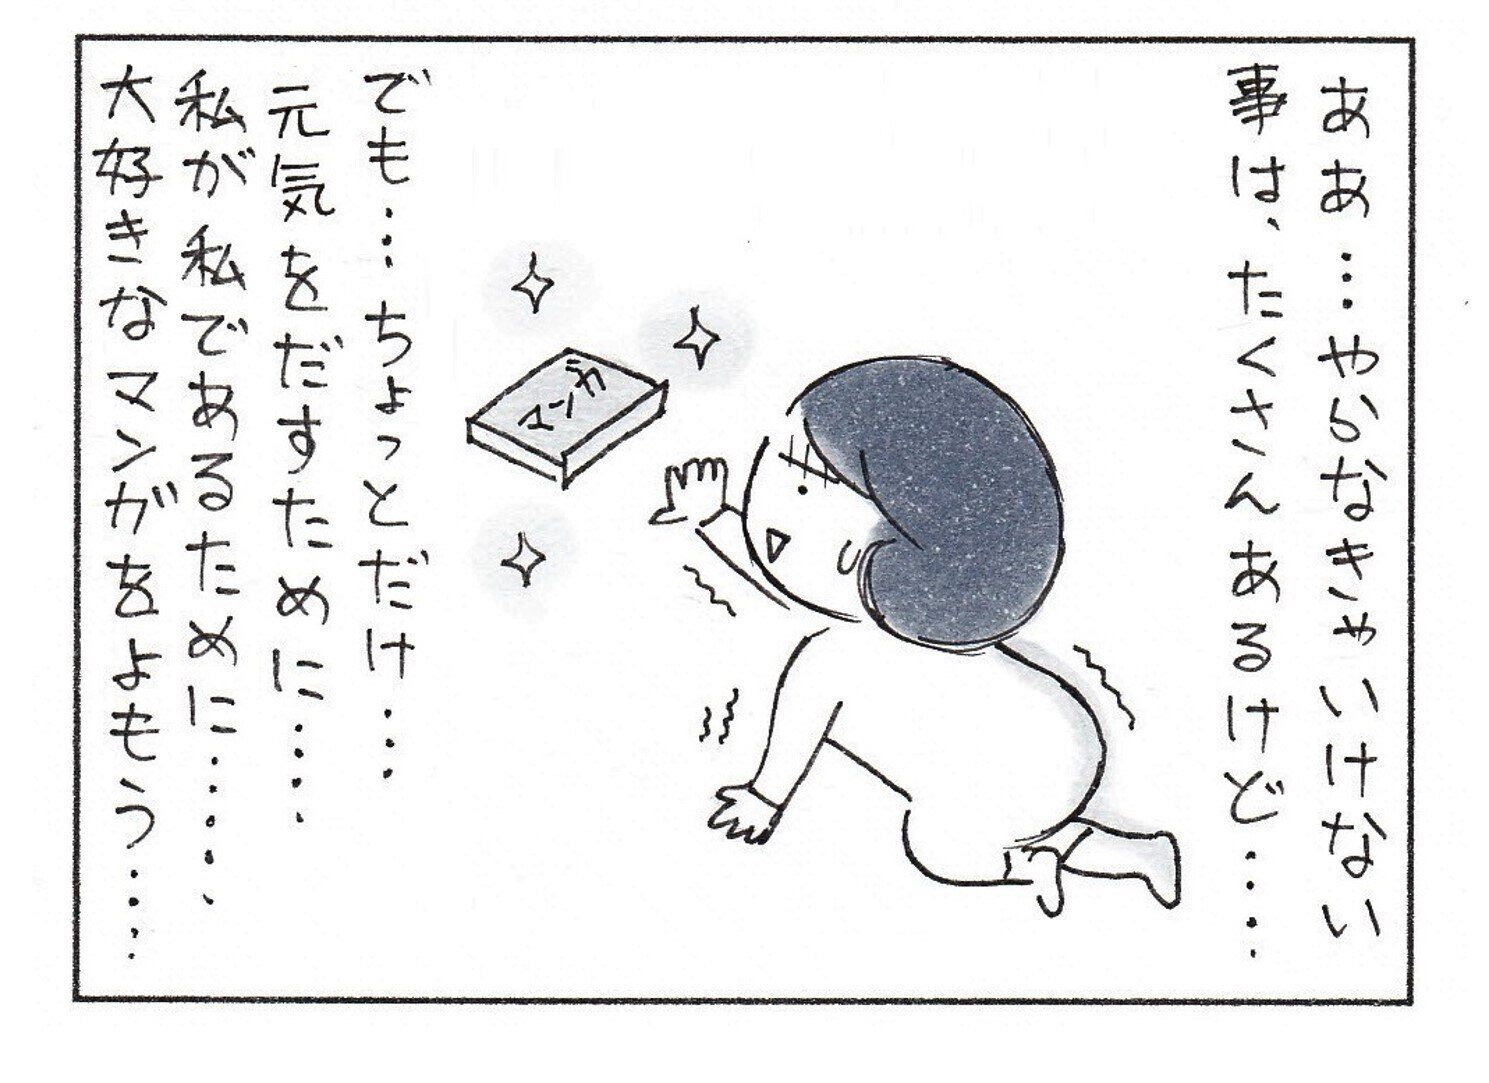 ああ…やらなきゃいけない
事は、たくさんあるけど‥‥
マンガ
でも…ちょっとだけ…
元気をだすために‥‥
私が私であるために‥‥‥
大好きなマンガをよもう‥‥